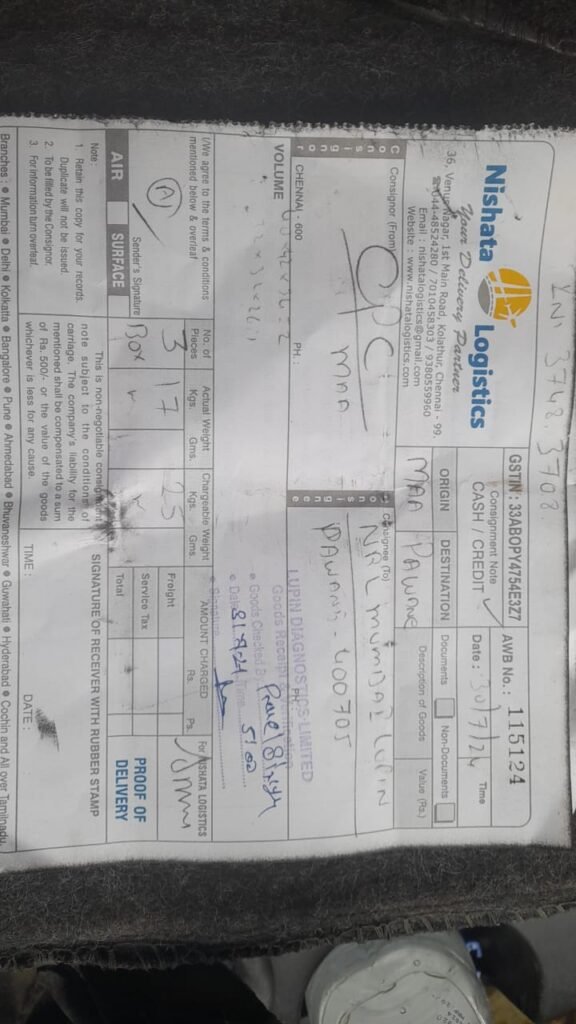 INV 3742, 3708
Nishata Logistics
Your Delivery Partner
36, Venu Nagar, 1st Main Road, Kolathur, Chennai - 99.
☎ 044-48524280 / 7010458303 / 9380559960
Email : nishatalogistics@gmail.com
Website : www.nishatalogistics.com
GSTIN : 33ABOPY4754E3Z7
Consignment Note
CASH / CREDIT ✓
AWB No. : 115124
Date : 30/7/24
Time
ORIGIN
MAA
DESTINATION
PAWANE
Documents
Non-Documents
Description of Goods
Value (Rs.)
Consignor
Consignor (From)
CPC
MAA
CHENNAI - 600
PH. :
Consignee
Consignee (To)
NRL MUMBAI LUPIN
PAWANE - 400705
VOLUME
LUPIN DIAGNOSTICS LIMITED
Goods Receipt & Verification
Goods Checked By
Date
Time
5:00
Signature
I/We agree to the terms & conditions
mentioned below & overleaf
Sender's Signature
No. of
Pieces
3
Box
Actual Weight
Kgs.
Gms.
17
Chargeable Weight
Kgs.
Gms.
25
AMOUNT CHARGED
Rs.
Ps.
Freight
Service Tax
Total
For NISHATA LOGISTICS
PROOF OF
DELIVERY
AIR
SURFACE
Note :
1. Retain this copy for your records.
Duplicate will not be issued.
2. To be filled by the Consignor.
3. For information turn overleaf.
This is non-negotiable consignment
note subject to the conditions of
carriage. The company's liability for the
mentioned shall be compensated to a sum
of Rs 500/- or the value of the goods
whichever is less for any cause.
SIGNATURE OF RECEIVER WITH RUBBER STAMP
TIME :
DATE :
Branches : ● Mumbai ● Delhi ● Kolkatta ● Bangalore ● Pune ● Ahmedabad ● Bhuvaneshwar ● Guwahati ● Hyderabad ● Cochin and All over Tamilnadu.